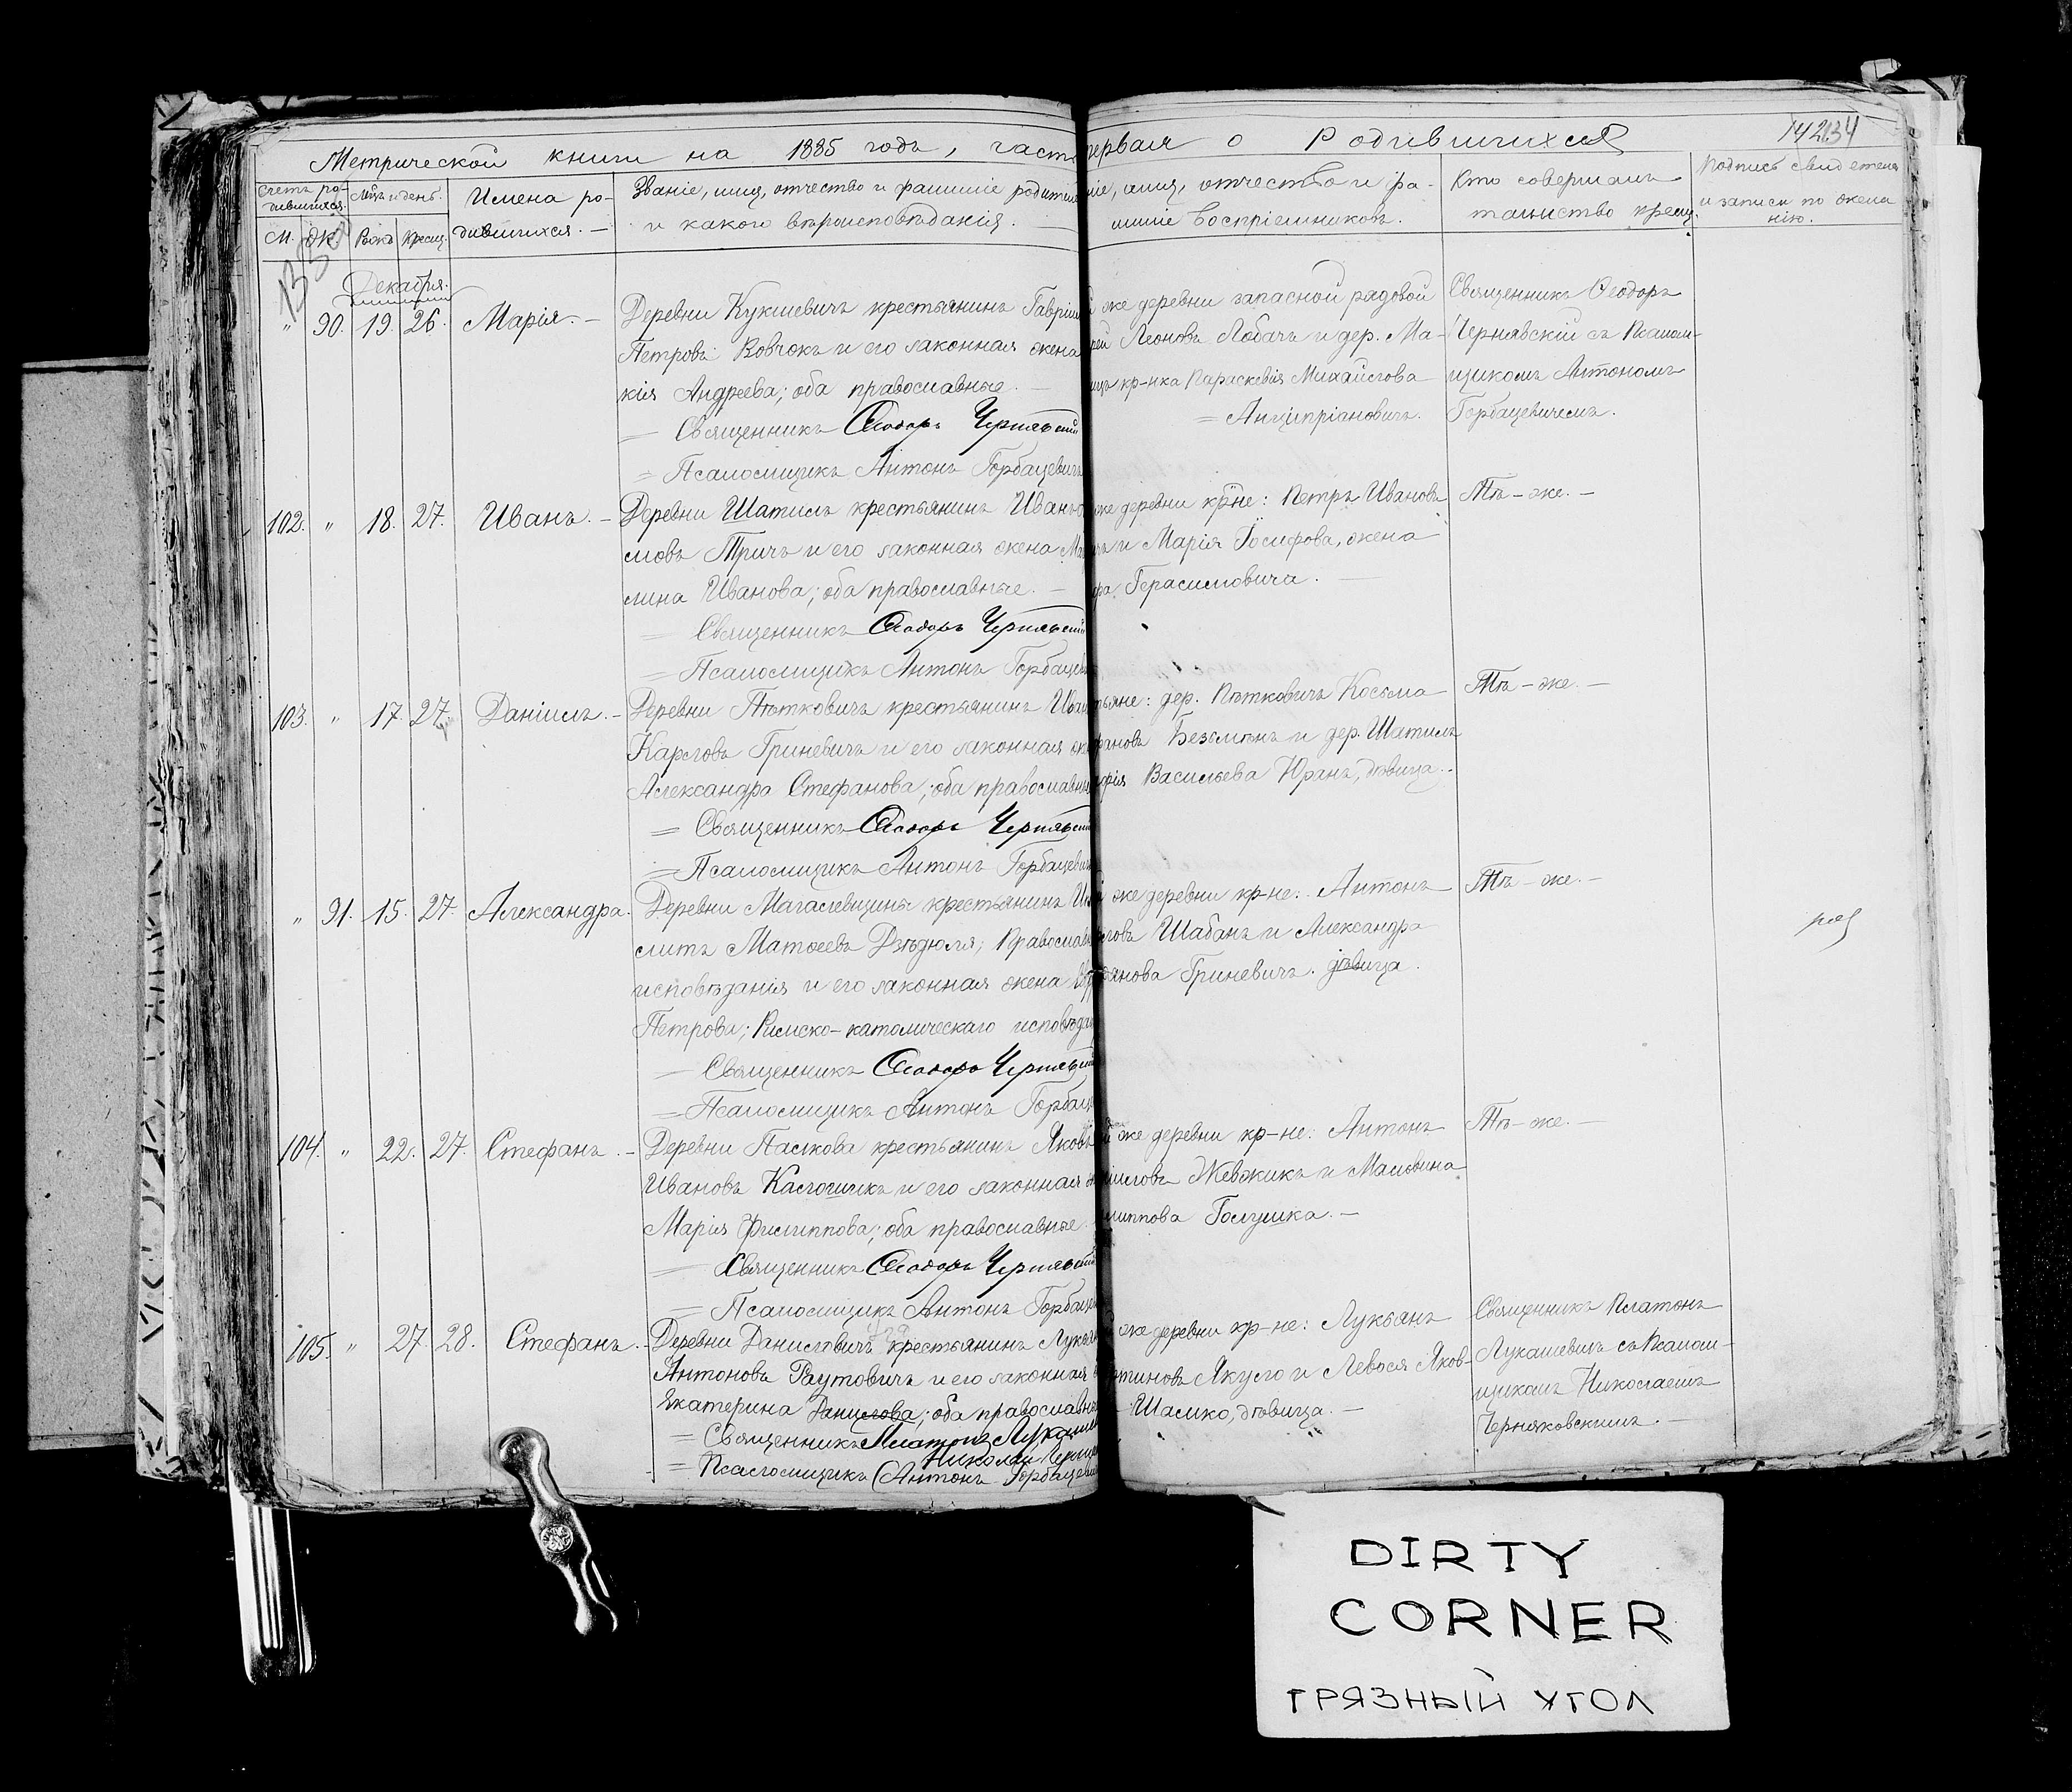 Метрической книги на 1885 годъ, часть первая о Родившихся
Счетъ родившихся.
М. Ж.
Мѣц. и день.
Рожд. Крещ.
Имена родившихся. —
Званіе, имя, отчество и фамиліе родителей и какого вѣроисповѣданія.
ніе, имя, отчество и фамиліе воспріемниковъ.
Кто совершалъ таинство крещ.
Подпись свидетеля и записи по желанію.
Декабря.
" 90. 19. 26. Марія. —
Деревни Кукшевичъ крестьянинъ Гавріил
Петровъ Вовчокъ и его законная жена
кія Андреева; оба православные. —
= Священникъ Ѳеодоръ Чернявскій
= Псаломщикъ Антонъ Горбацевичъ
же деревни запасной рядовой
Леоновъ Лобачъ и дер. Ма-
кр-нка Параскевія Михайлова
= Анципріановичъ.
Священникъ Ѳеодоръ
Чернявскій съ Псалом-
щикомъ Антономъ
Горбацевичемъ.
102. " 18. 27. Иванъ. —
Деревни Шатилъ крестьянинъ Иванъ
мовъ Тричъ и его законная жена Ма
лина Иванова; оба православные. —
= Священникъ Ѳеодоръ Чернявскій
= Псаломщикъ Антонъ Горбацев
же деревни кр-не: Петръ Ивановъ
и Марія Іосифова, жена
фа Герасимовича. —
Тѣ-же. —
103. " 17. 27. Даніилъ. —
Деревни Пѣтковичъ крестьянинъ Иван
Карповъ Гриневичъ и его законная же
Александра Стефанова; оба православны
= Священникъ Ѳеодоръ Чернявскі
= Псаломщикъ Антонъ Горбацевич
тьяне: дер. Пѣтковичъ Косьма
фановъ Безмѣнъ и дер. Шатилъ
рія Васильева Юранъ, дѣвица.
Тѣ-же. —
" 91. 15. 27. Александра.
Деревни Магалевщины крестьянинъ И
литъ Матѳеевъ Дзѣдюля; Православ
исповѣданія и его законная жена Ев
Петрова; Римско-католическаго исповѣда
= Священникъ Ѳеодоръ Чернявскі
= Псаломщикъ Антонъ Горбац
же деревни кр-не: Антонъ
ловъ Шабанъ и Александра
янова Гриневичъ. дѣвица.
Тѣ-же. —
104. " 22. 27. Стефанъ. —
Деревни Пасѣкова крестьянинъ Яковъ
Ивановъ Калошикъ и его законная ж
Марія Филиппова; оба православные.
= Священникъ Ѳеодоръ Чернявскій
= Псаломщикъ Антонъ Горбац
же деревни кр-не: Антонъ
иловъ Жевжикъ и Мальвина
липпова Голушка. —
Тѣ-же. —
105. " 27. 28. Стефанъ. —
Деревни Даниловичъ крестьянинъ Лукья
Антоновъ Раутовичъ и его законная
Екатерина Данилова; оба православны
= Священникъ Платонъ Лукашев
Николай Черня
= Псаломщикъ (Антонъ Горбацеви
же деревни кр-не: Лукьянъ
тиновъ Якуло и Левося Яков-
Шалико, дѣвица. —
Священникъ Платонъ
Лукашевичъ съ Псалом-
щикомъ Николаемъ
Черняковскимъ. —
DIRTY
CORNER
ГРЯЗНЫЙ УГОЛ